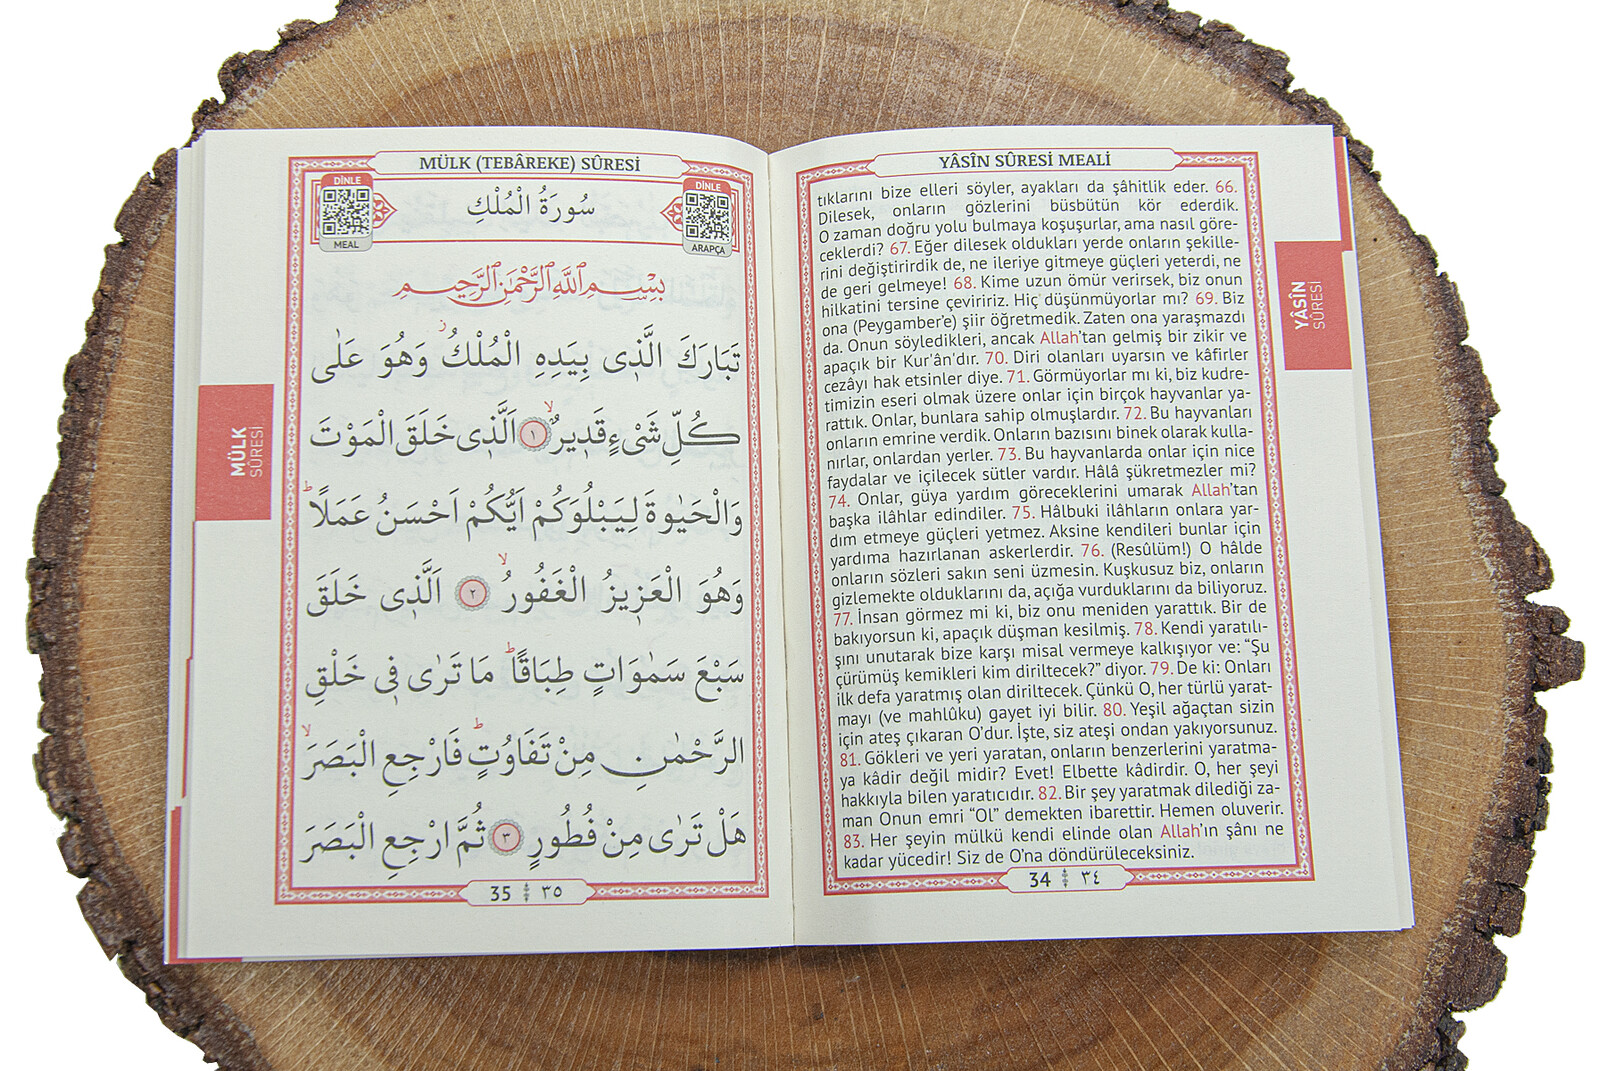 YÂSÎN SÛRESİ MEALİ
tıklarını bize elleri söyler, ayakları da şâhitlik eder. 66.
Dilesek, onların gözlerini büsbütün kör ederdik.
O zaman doğru yolu bulmaya koşuşurlar, ama nasıl göre-
ceklerdi? 67. Eğer dilesek oldukları yerde onların şekille-
rini değiştirirdik de, ne ileriye gitmeye güçleri yeterdi, ne
de geri gelmeye! 68. Kime uzun ömür verirsek, biz onun
hilkatini tersine çeviririz. Hiç düşünmüyorlar mı? 69. Biz
ona (Peygamber’e) şiir öğretmedik. Zaten ona yaraşmazdı
da. Onun söyledikleri, ancak Allah’tan gelmiş bir zikir ve
apaçık bir Kur’ân’dır. 70. Diri olanları uyarsın ve kâfirler
cezâyı hak etsinler diye. 71. Görmüyorlar mı ki, biz kudre-
timizin eseri olmak üzere onlar için birçok hayvanlar ya-
rattık. Onlar, bunlara sahip olmuşlardır. 72. Bu hayvanları
onların emrine verdik. Onların bazısını binek olarak kulla-
nırlar, onlardan yerler. 73. Bu hayvanlarda onlar için nice
faydalar ve içilecek sütler vardır. Hâlâ şükretmezler mi?
74. Onlar, güya yardım göreceklerini umarak Allah’tan
başka ilâhlar edindiler. 75. Hâlbuki ilâhların onlara yar-
dım etmeye güçleri yetmez. Aksine kendileri bunlar için
yardıma hazırlanan askerlerdir. 76. (Resûlüm!) O hâlde
onların sözleri sakın seni üzmesin. Kuşkusuz biz, onların
gizlemekte olduklarını da, açığa vurduklarını da biliyoruz.
77. İnsan görmez mi ki, biz onu meniden yarattık. Bir de
bakıyorsun ki, apaçık düşman kesilmiş. 78. Kendi yaratılı-
şını unutarak bize karşı misal vermeye kalkışıyor ve: “Şu
çürümüş kemikleri kim diriltecek?” diyor. 79. De ki: Onları
ilk defa yaratmış olan diriltecek. Çünkü O, her türlü yarat-
mayı (ve mahlûku) gayet iyi bilir. 80. Yeşil ağaçtan sizin
için ateş çıkaran O’dur. İşte, siz ateşi ondan yakıyorsunuz.
81. Gökleri ve yeri yaratan, onların benzerlerini yaratma-
ya kâdir değil midir? Evet! Elbette kâdirdir. O, her şeyi
hakkıyla bilen yaratıcıdır. 82. Bir şey yaratmak dilediği za-
man Onun emri “Ol” demekten ibarettir. Hemen oluverir.
83. Her şeyin mülkü kendi elinde olan Allah’ın şânı ne
kadar yücedir! Siz de O’na döndürüleceksiniz.
34 ٣٤
YÂSÎN
SÛRESİ
MÜLK (TEBÂREKE) SÛRESİ
DİNLE
MEAL
سُورَةُ الْمُلْكِ
DİNLE
ARAPÇA
بِسْمِ اللّٰهِ الرَّحْمٰنِ الرَّحِيمِ
تَبَارَكَ الَّذٖى بِيَدِهِ الْمُلْكُ ز وَهُوَ عَلٰى
كُلِّ شَىْءٍ قَدٖيرٌ ۙ ١ اَلَّذٖى خَلَقَ الْمَوْتَ
وَالْحَيٰوةَ لِيَبْلُوَكُمْ اَيُّكُمْ اَحْسَنُ عَمَلًا ط
وَهُوَ الْعَزٖيزُ الْغَفُورُ ۙ ٢ اَلَّذٖى خَلَقَ
سَبْعَ سَمٰوَاتٍ طِبَاقًا ط مَا تَرٰى فٖى خَلْقِ
الرَّحْمٰنِ مِنْ تَفَاوُتٍ ط فَارْجِعِ الْبَصَرَ ۙ
هَلْ تَرٰى مِنْ فُطُورٍ ٣ ثُمَّ ارْجِعِ الْبَصَرَ
35 ٣٥
MÜLK
SÛRESİ